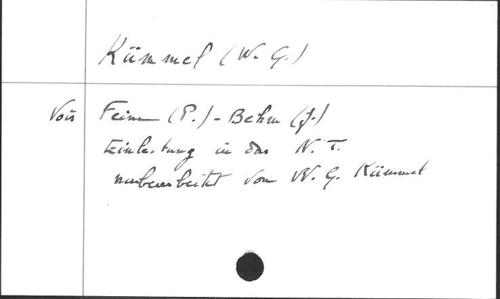 Kümmel (W. G.)
Voir Feine (P.) - Behm (J.)
Einleitung in das N. T.
neubearbeitet von W. G. Kümmel